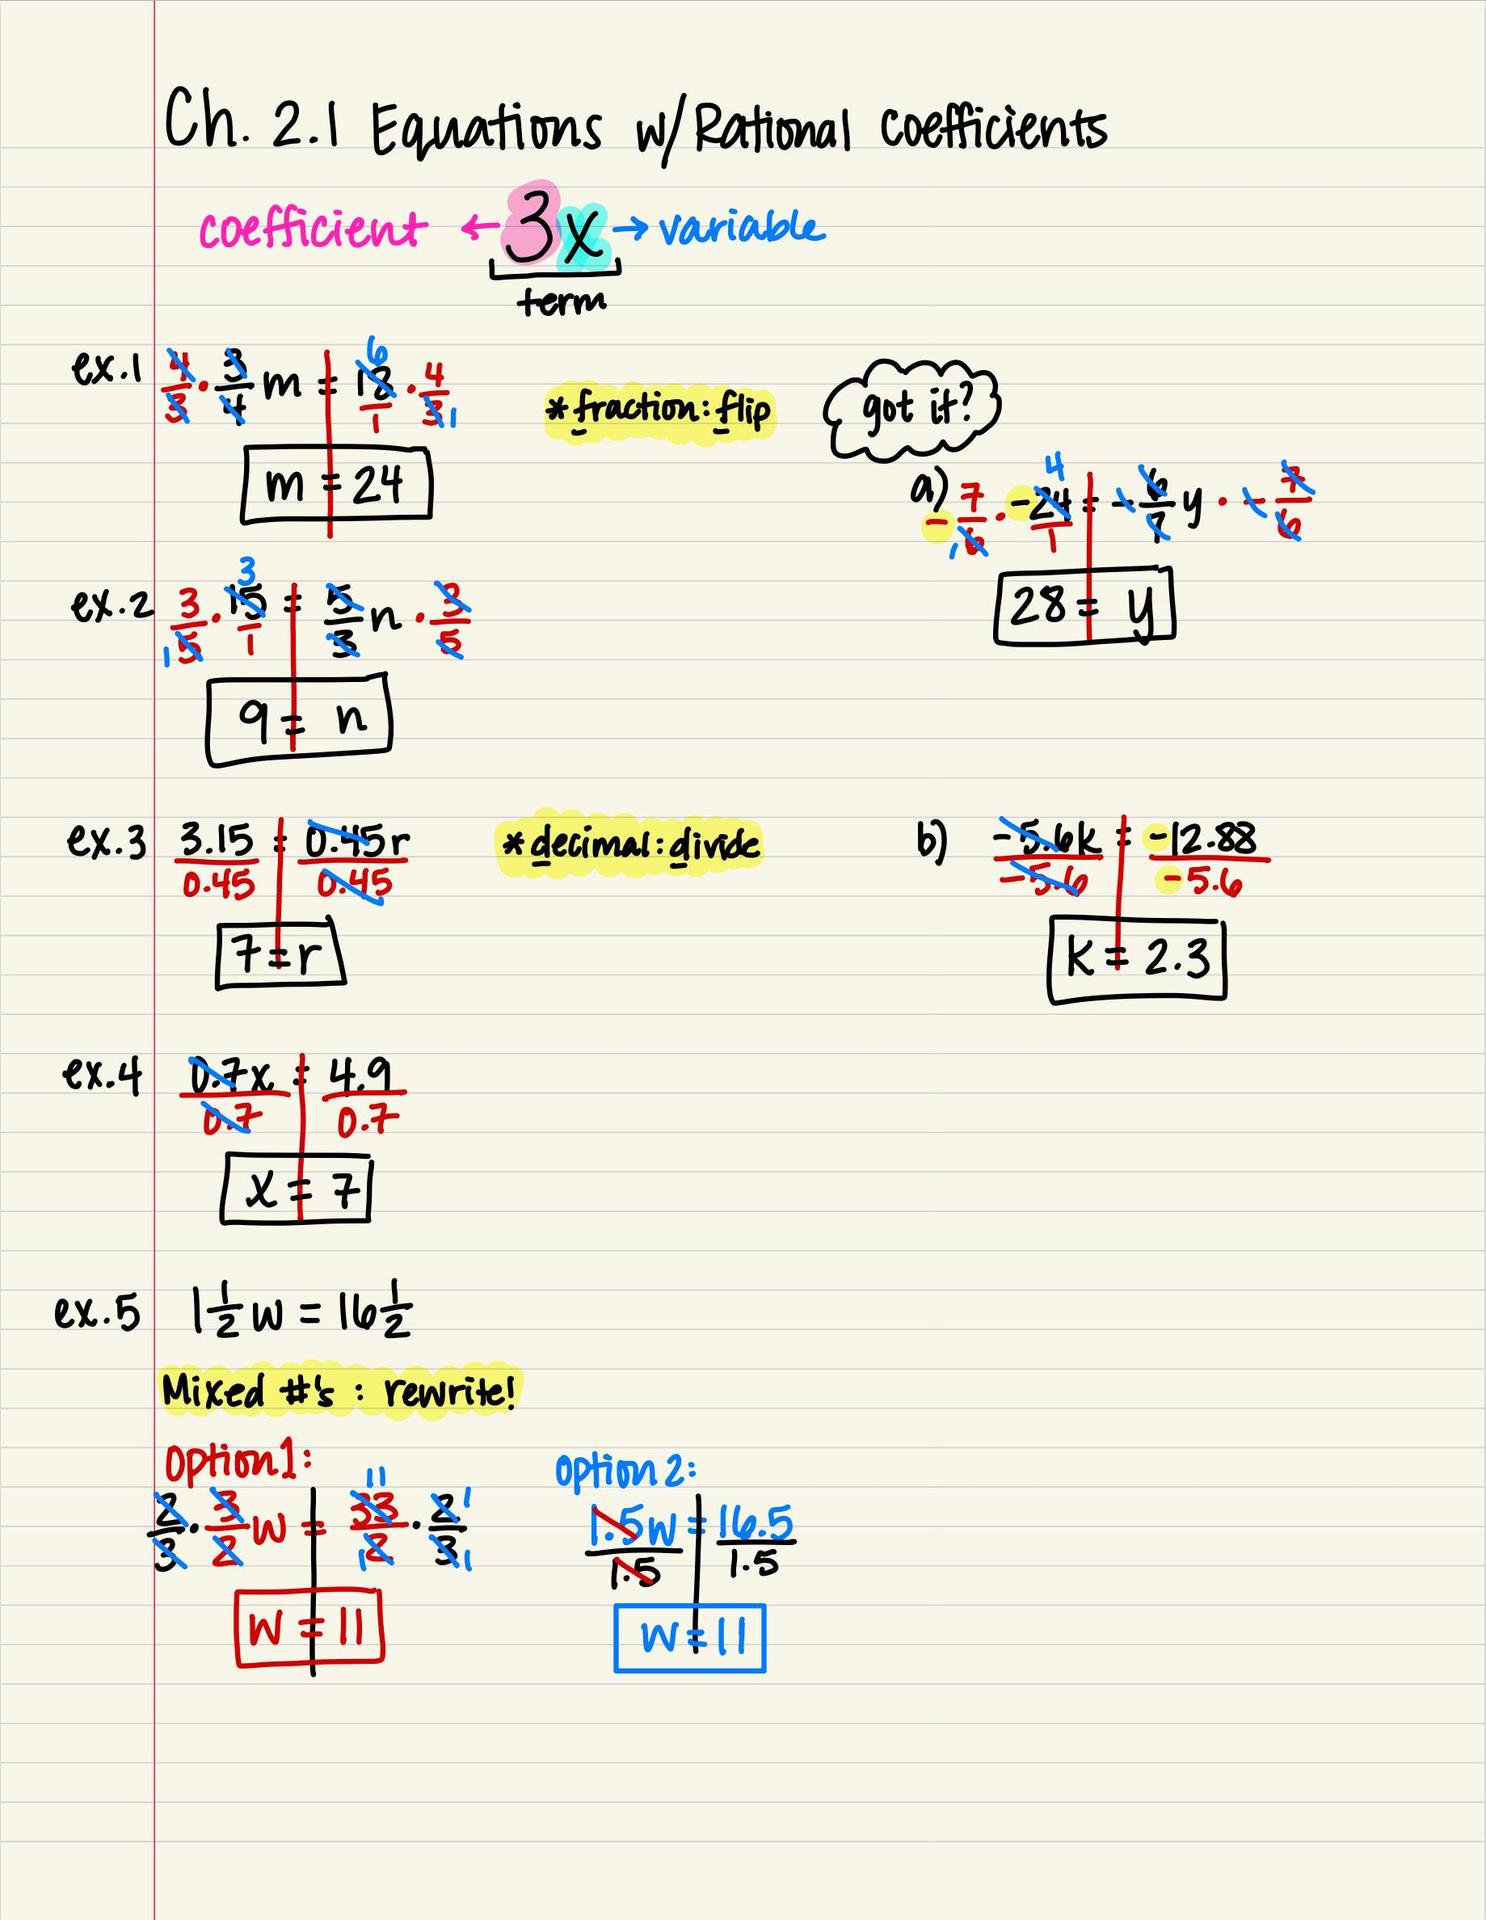 Ch. 2.1 Equations w/Rational Coefficients
coefficient ← 3x → variable
term
ex.1 4/3 · 3/4 m = 12/1 · 4/3
6
1
*fraction: flip
got it?
m = 24
a) -7/6 · -24/1 = -6/7 y · -7/6
4
1
28 = y
ex.2 3/5 · 15/1 = 5/3 n · 3/5
3
1
9 = n
ex.3 3.15/0.45 = 0.45r/0.45
*decimal: divide
7 = r
b) -5.6k/-5.6 = -12.88/-5.6
k = 2.3
ex.4 0.7x/0.7 = 4.9/0.7
x = 7
ex.5 1 1/2 w = 16 1/2
Mixed #'s : rewrite!
Option 1:
2/3 · 3/2 w = 33/2 · 2/3
11 1
1 1
w = 11
Option 2:
1.5w/1.5 = 16.5/1.5
w = 11